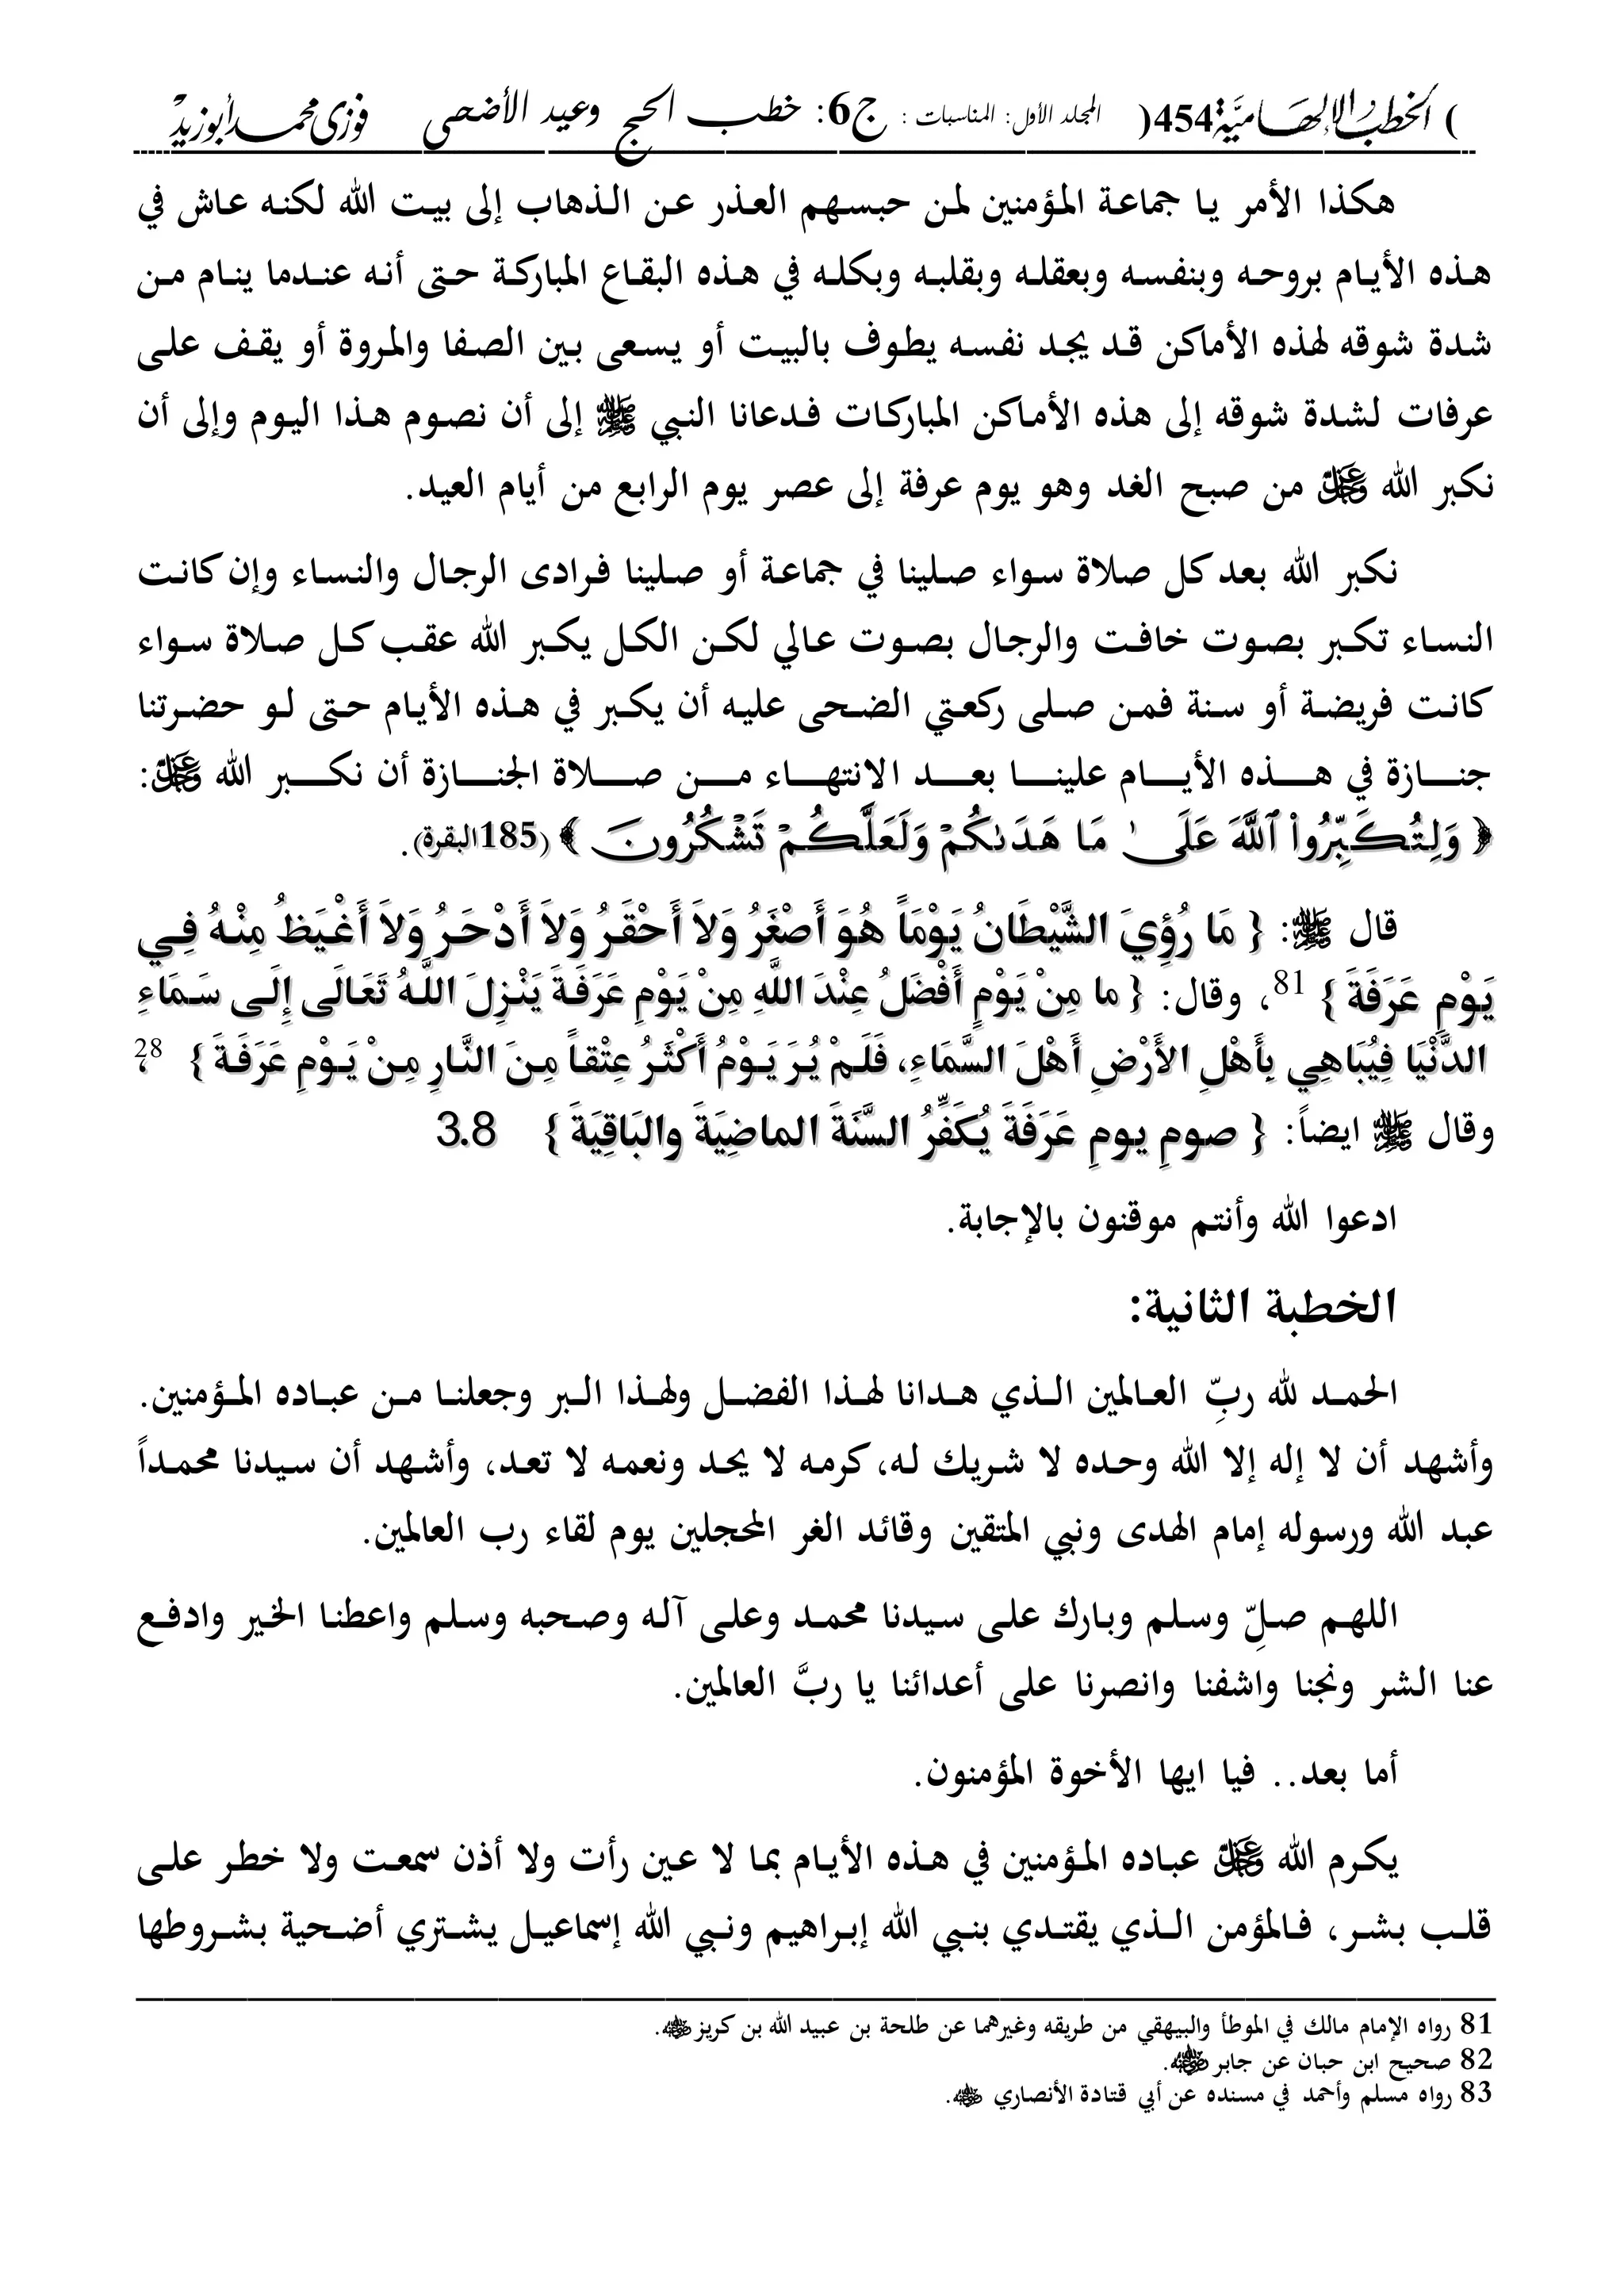 ) الخطب الإلهامية 454( المجلد الأول: المناسبات : ج6: خطب الحج وعيد الأضحى فوزى محمد أبوزيد
هكذا الأمر يا جماعة المؤمنين لمن حبسهم العذر عن الذهاب إلى بيت الله لكنه عاش في
هذه الأيام بروحه وبنفسه وبعقله وبقلبه وبكله في هذه البقاع المباركة حتى أنه عندما ينام من
شدة شوقه لهذه الأماكن قد يجد نفسه يطوف بالبيت أو يسعى بين الصفا والمروة أو يقف على
عرفات لشدة شوقه إلى هذه الأماكن المباركات فدعانا النبي ﷺ إلى أن نصوم هذا اليوم وإلى أن
نكبر الله عز وجل من صبح الغد وهو يوم عرفة إلى عصر يوم الرابع من أيام العيد.
نكبر الله بعد كل صلاة سواء صلينا في جماعة أو صلينا فرادى الرجال والنساء وإن كانت
النساء تكبر بصوت خافت والرجال بصوت عالي لكن الكل يكبر الله عقب كل صلاة سواء
كانت فريضة أو سنة فمن صلى ركعتي الضحى عليه أن يكبر في هذه الأيام حتى لو حضرتنا
جنازة في هذه الأيام علينا بعد الانتهاء من صلاة الجنازة أن نكبر الله عز وجل:
﴿ وَلِتُكَبِّرُوا۟ ٱللَّهَ عَلَىٰ مَا هَدَىٰكُمْ وَلَعَلَّكُمْ تَشْكُرُونَ ﴾ (185البقرة).
قال ﷺ: { مَا رُؤِيَ الشَّيْطَانُ يَوْمَاً هُوَ أَصْغَرُ وَلاَ أَحْقَرُ وَلاَ أَدْحَرُ وَلاَ أَغْيَظُ مِنْهُ فِي
يَوْمِ عَرَفَةَ } 81، وقال: { ما مِنْ يَوْمٍ أَفْضَلُ عِنْدَ اللَّهِ مِنْ يَوْمِ عَرَفَةَ يَنْزِلَ اللَّهُ تَعَالَى إِلَى سَمَاءِ
الدَّنْيَا فِيُبَاهِي بِأَهْلِ الأَرْضِ أَهْلَ السَّمَاءِ، فَلَمْ يُرَ يَوْمُ أَكْثَرُ عِتْقاً مِنَ النَّارِ مِنْ يَوْمِ عَرَفَةَ } 28،
وقال ﷺ ايضاً: { صومِ يومِ عَرَفَةَ يُكَفِّرُ السَّنَةَ الماضِيَةَ والبَاقِيَةَ } 3.8
ادعوا الله وأنتم موقنون بالإجابة.
الخطبة الثانية:
الحمد لله ربِّ العالمين الذي هدانا لهذا الفضل ولهذا البر وجعلنا من عباده المؤمنين.
وأشهد أن لا إله إلا الله وحده لا شريك له، كرمه لا يحد ونعمه لا تعد، وأشهد أن سيدنا محمداً
عبد الله ورسوله إمام الهدى ونبي المتقين وقائد الغر المحجلين يوم لقاء رب العالمين.
اللهم صلِّ وسلم وبارك على سيدنا محمد وعلى آله وصحبه وسلم واعطنا الخير وادفع
عنا الشر ونجنا واشفنا وانصرنا على أعدائنا يا ربَّ العالمين.
أما بعد.. فيا ايها الأخوة المؤمنون.
يكرم الله عز وجل عباده المؤمنين في هذه الأيام بما لا عين رأت ولا أذن سمعت ولا خطر على
قلب بشر، فالمؤمن الذي يقتدي بنبي الله إبراهيم ونبي الله إسماعيل يشتري أضحية بشروطها
81 رواه الإمام مالك في الموطأ والبيهقي من طريقه وغيرهما عن طلحة بن عبيد الله بن كريز رضي الله عنه.
82 صحيح ابن حبان عن جابر رضي الله عنه.
83 رواه مسلم وأحمد في مسنده عن أبي قتادة الأنصاري رضي الله عنه.